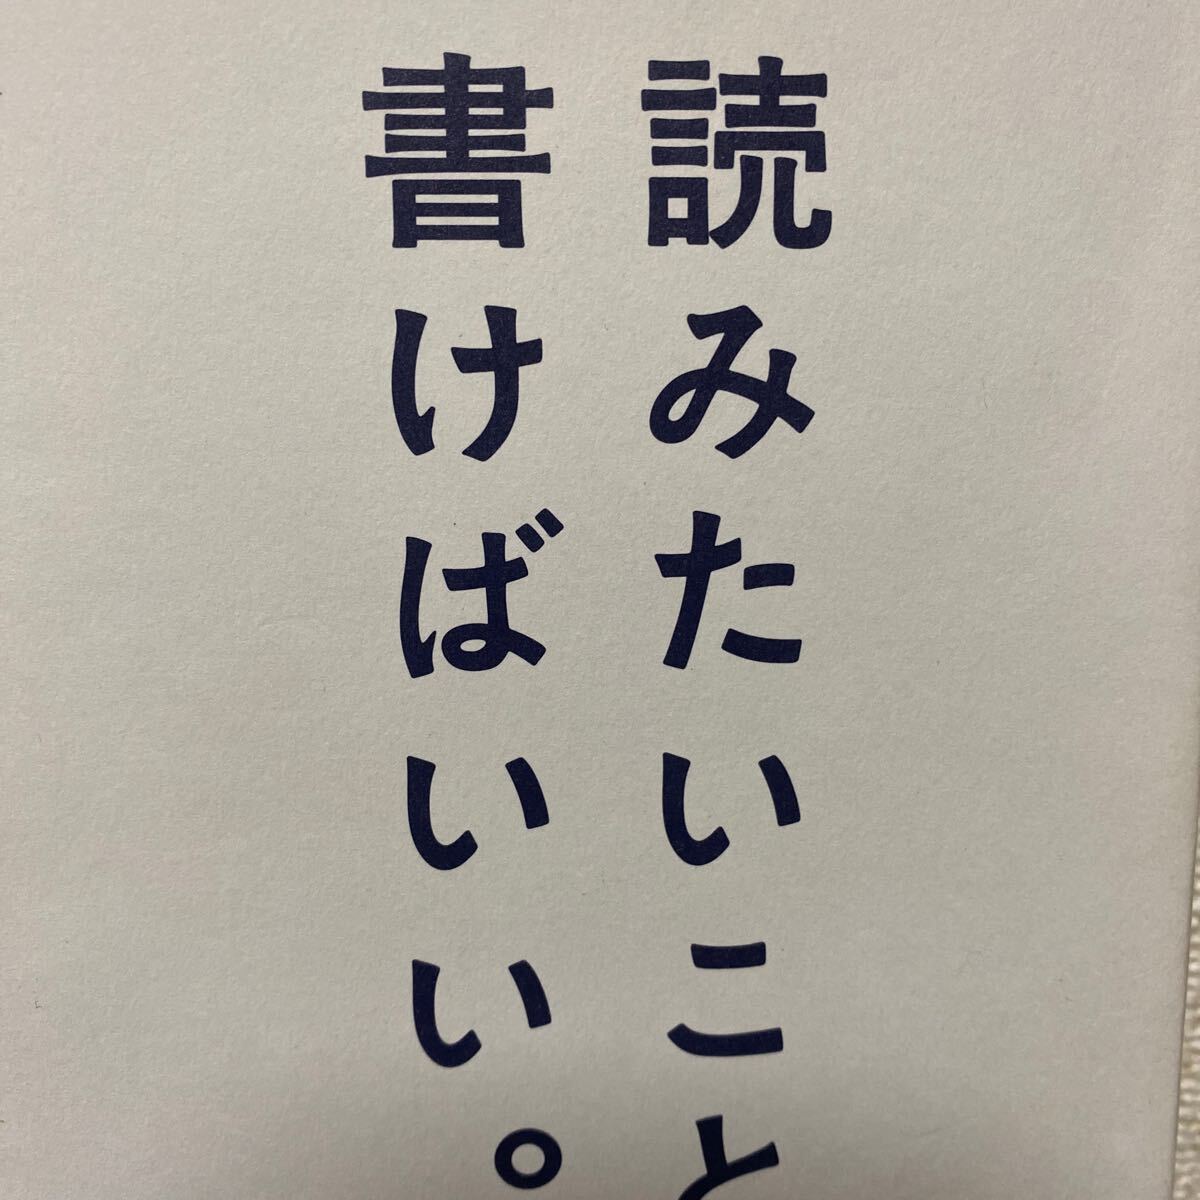 読みたいこと
書けばいい。